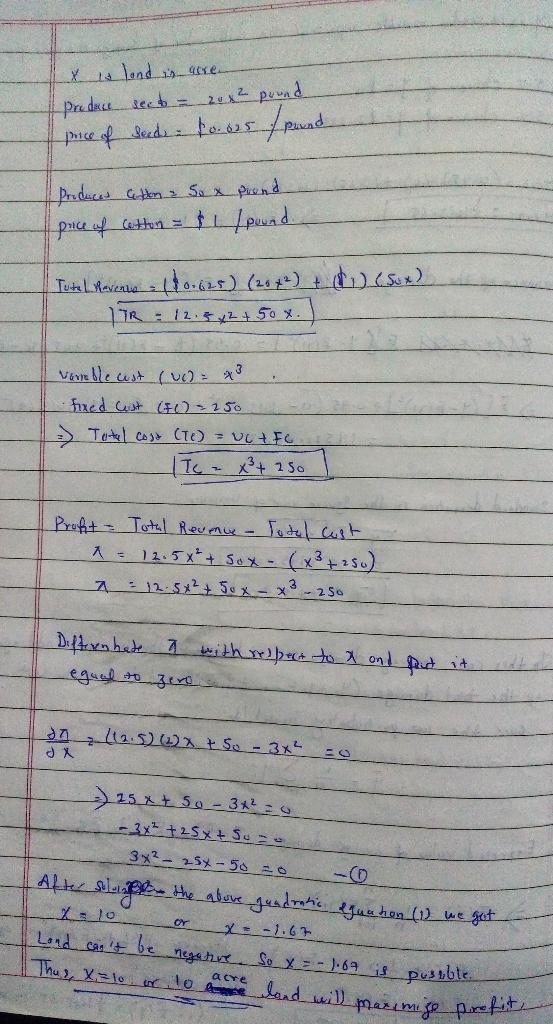 x is land in acre.
produce seeds = 20x² pound
price of seeds = $0.625 / pound
Produces cotton = 50 x pound
price of cotton = $1 / pound
Total Revenue = ($0.625) (20x²) + ($1) (50x)
TR = 12.5x² + 50x.
Variable cost (VC) = x³.
fixed cost (FC) = 250
=> Total cost (TC) = VC + FC
TC = x³ + 250
Profit = Total Revenue - Total Cost
π = 12.5x² + 50x - (x³ + 250)
π = 12.5x² + 50x - x³ - 250
Differentiate π with respect to x and put it
equal to zero
∂π/∂x = (12.5)(2)x + 50 - 3x² = 0
=> 25x + 50 - 3x² = 0
-3x² + 25x + 50 = 0
3x² - 25x - 50 = 0 - (1)
After solving the above quadratic equation (1) we got
x = 10 or x = -1.67
Land can't be negative. So x = -1.67 is possible.
Thus, x = 10 or 10 acre land will maximize profit.